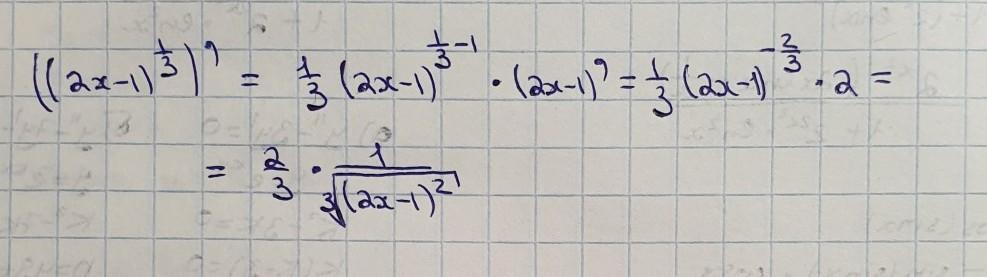 ((2x-1)^{\frac{1}{3}})' = \frac{1}{3} (2x-1)^{\frac{1}{3}-1} \cdot (2x-1)' = \frac{1}{3} (2x-1)^{-\frac{2}{3}} \cdot 2 =
= \frac{2}{3} \cdot \frac{1}{\sqrt[3]{(2x-1)^2}}